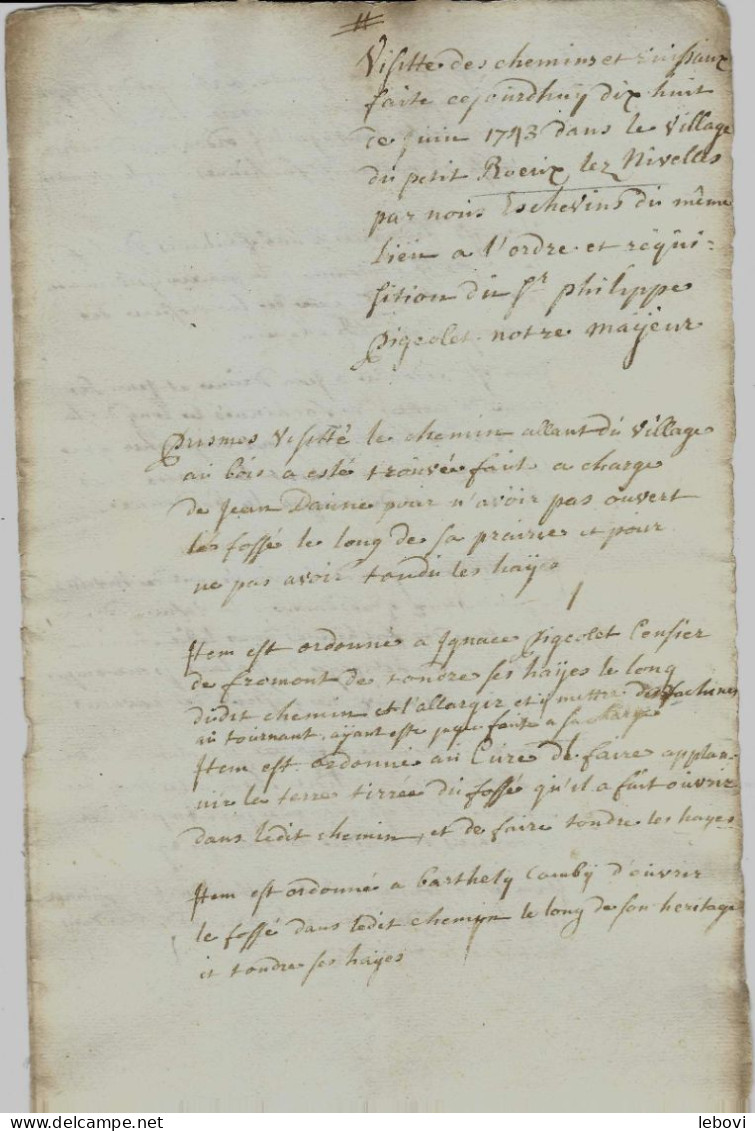 Visitte des chemins et ruissaux
faite cejourdhuÿ dix huit
de juin 1743 dans le village
du petit Roeux lez Nivelles
par nous Eschevins du même
lieu a l'ordre et requi-
sition du Sr philippe
Pigeolet notre maÿeur
Primes visitté le chemin allant du village
au bois a esté trouvée fait a charge
de Jean Daune pour n'avoir pas ouvert
le fossé le long de sa prairie et pour
ne pas avoir tondu les haÿes
Item est ordonné a Ignace Pigeolet Censier
de fromont de tondre ses haÿes le long
dudit chemin et l'allargir et ÿ mettre des fachines
au tournant, aÿant esté jugé faute a sa charge
Item est ordonné au Curé de faire applan-
nir le terre tirrée du fossé qu'il a fait ouvrir
dans ledit chemin, et de faire tondre les hayes
Item est ordonné a Barthelÿ Cambÿ d'ouvrir
le fossé dans ledit chemin le long de son heritage
et tondre ses haÿes
lebovi